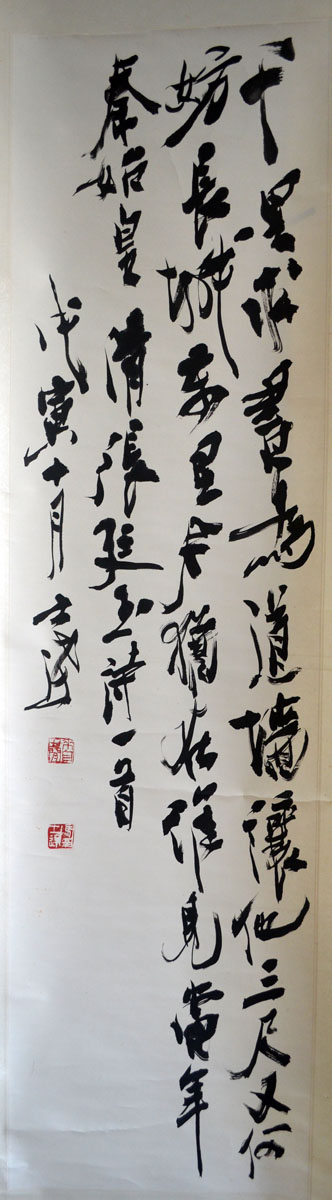 千里求書為道墻讓他三尺又何
妨長城萬里今猶在誰見當年
秦始皇 清張廷玉詩一首
戊寅十月士